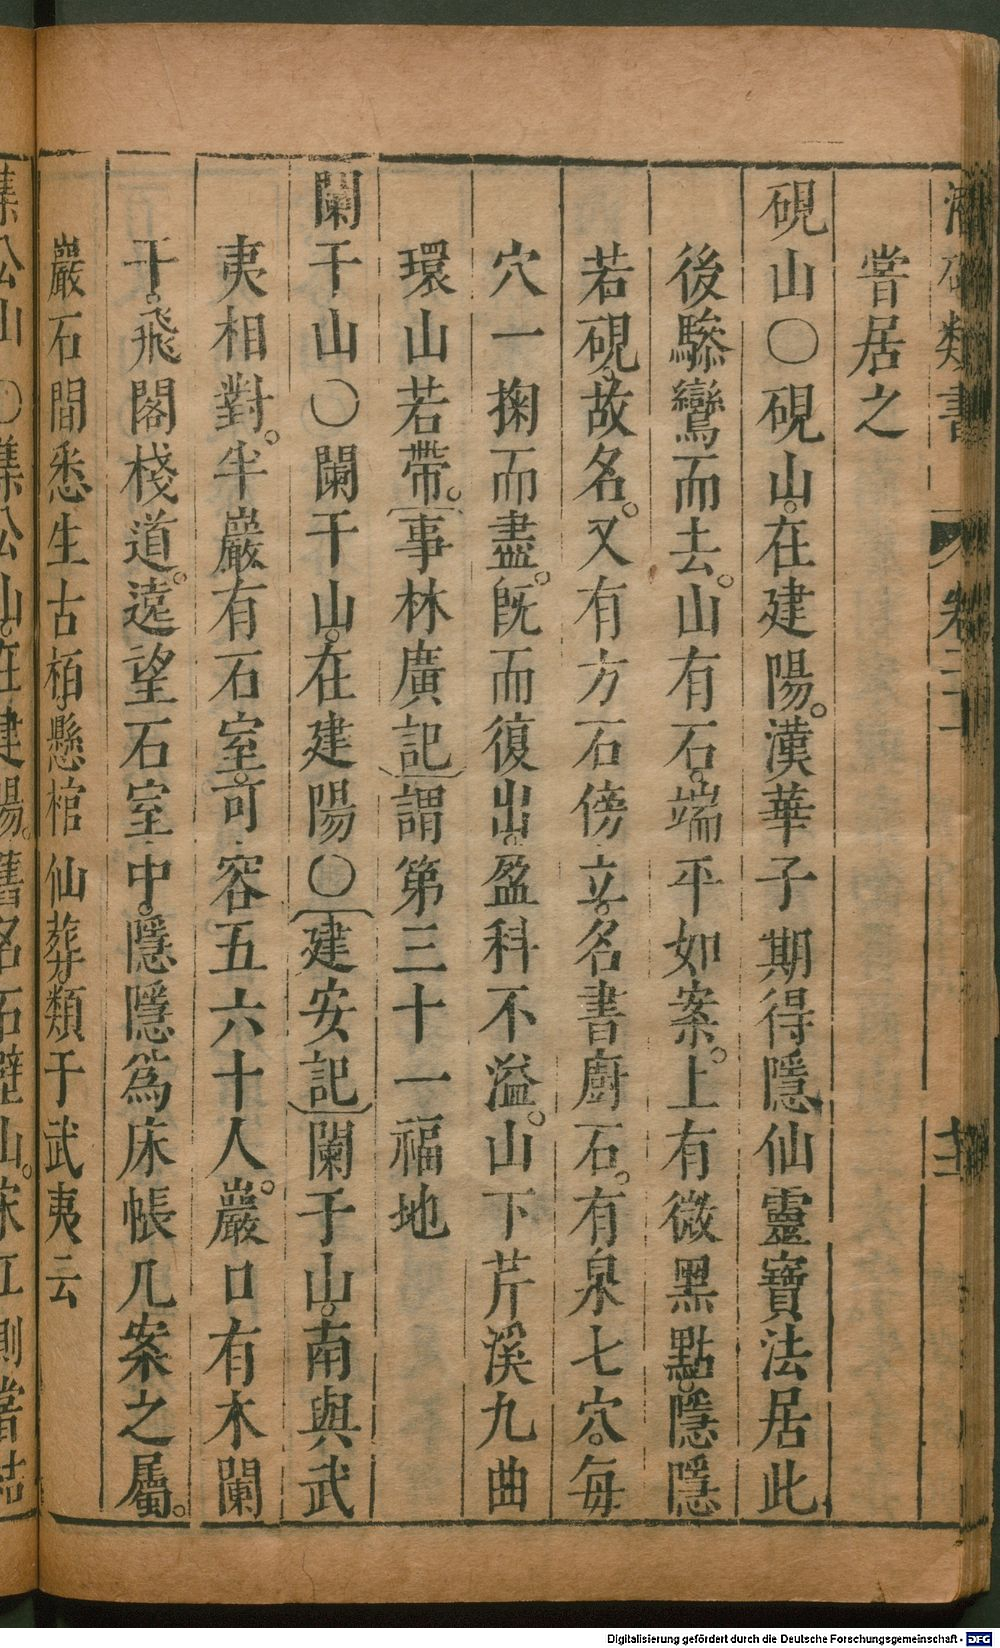 類書 卷二十
嘗居之
硯山○硯山。在建陽。漢華子期得隱仙靈寶法居此
後驂鸞而去。山有石。端平如案。上有微黑點。隱隱
若硯。故名。又有方石傍立。名書廚石。有泉七穴。每
穴一掬而盡。旣而復出。盈科不溢。山下芹溪九曲
環山若帶。〔事林廣記〕謂第三十一福地
闌干山○闌干山。在建陽○〔建安記〕闌干山。南與武
夷相對。半巖有石室。可容五六十人。巖口有木闌
干。飛閣棧道。遠望石室中。隱隱爲床帳几案之屬。
巖石間悉生古栢。懸棺仙葬。類于武夷云
集公山○集公山。在建陽。舊名石壁山。宋江側嘗結
Digitalisierung gefördert durch die Deutsche Forschungsgemeinschaft - DFG